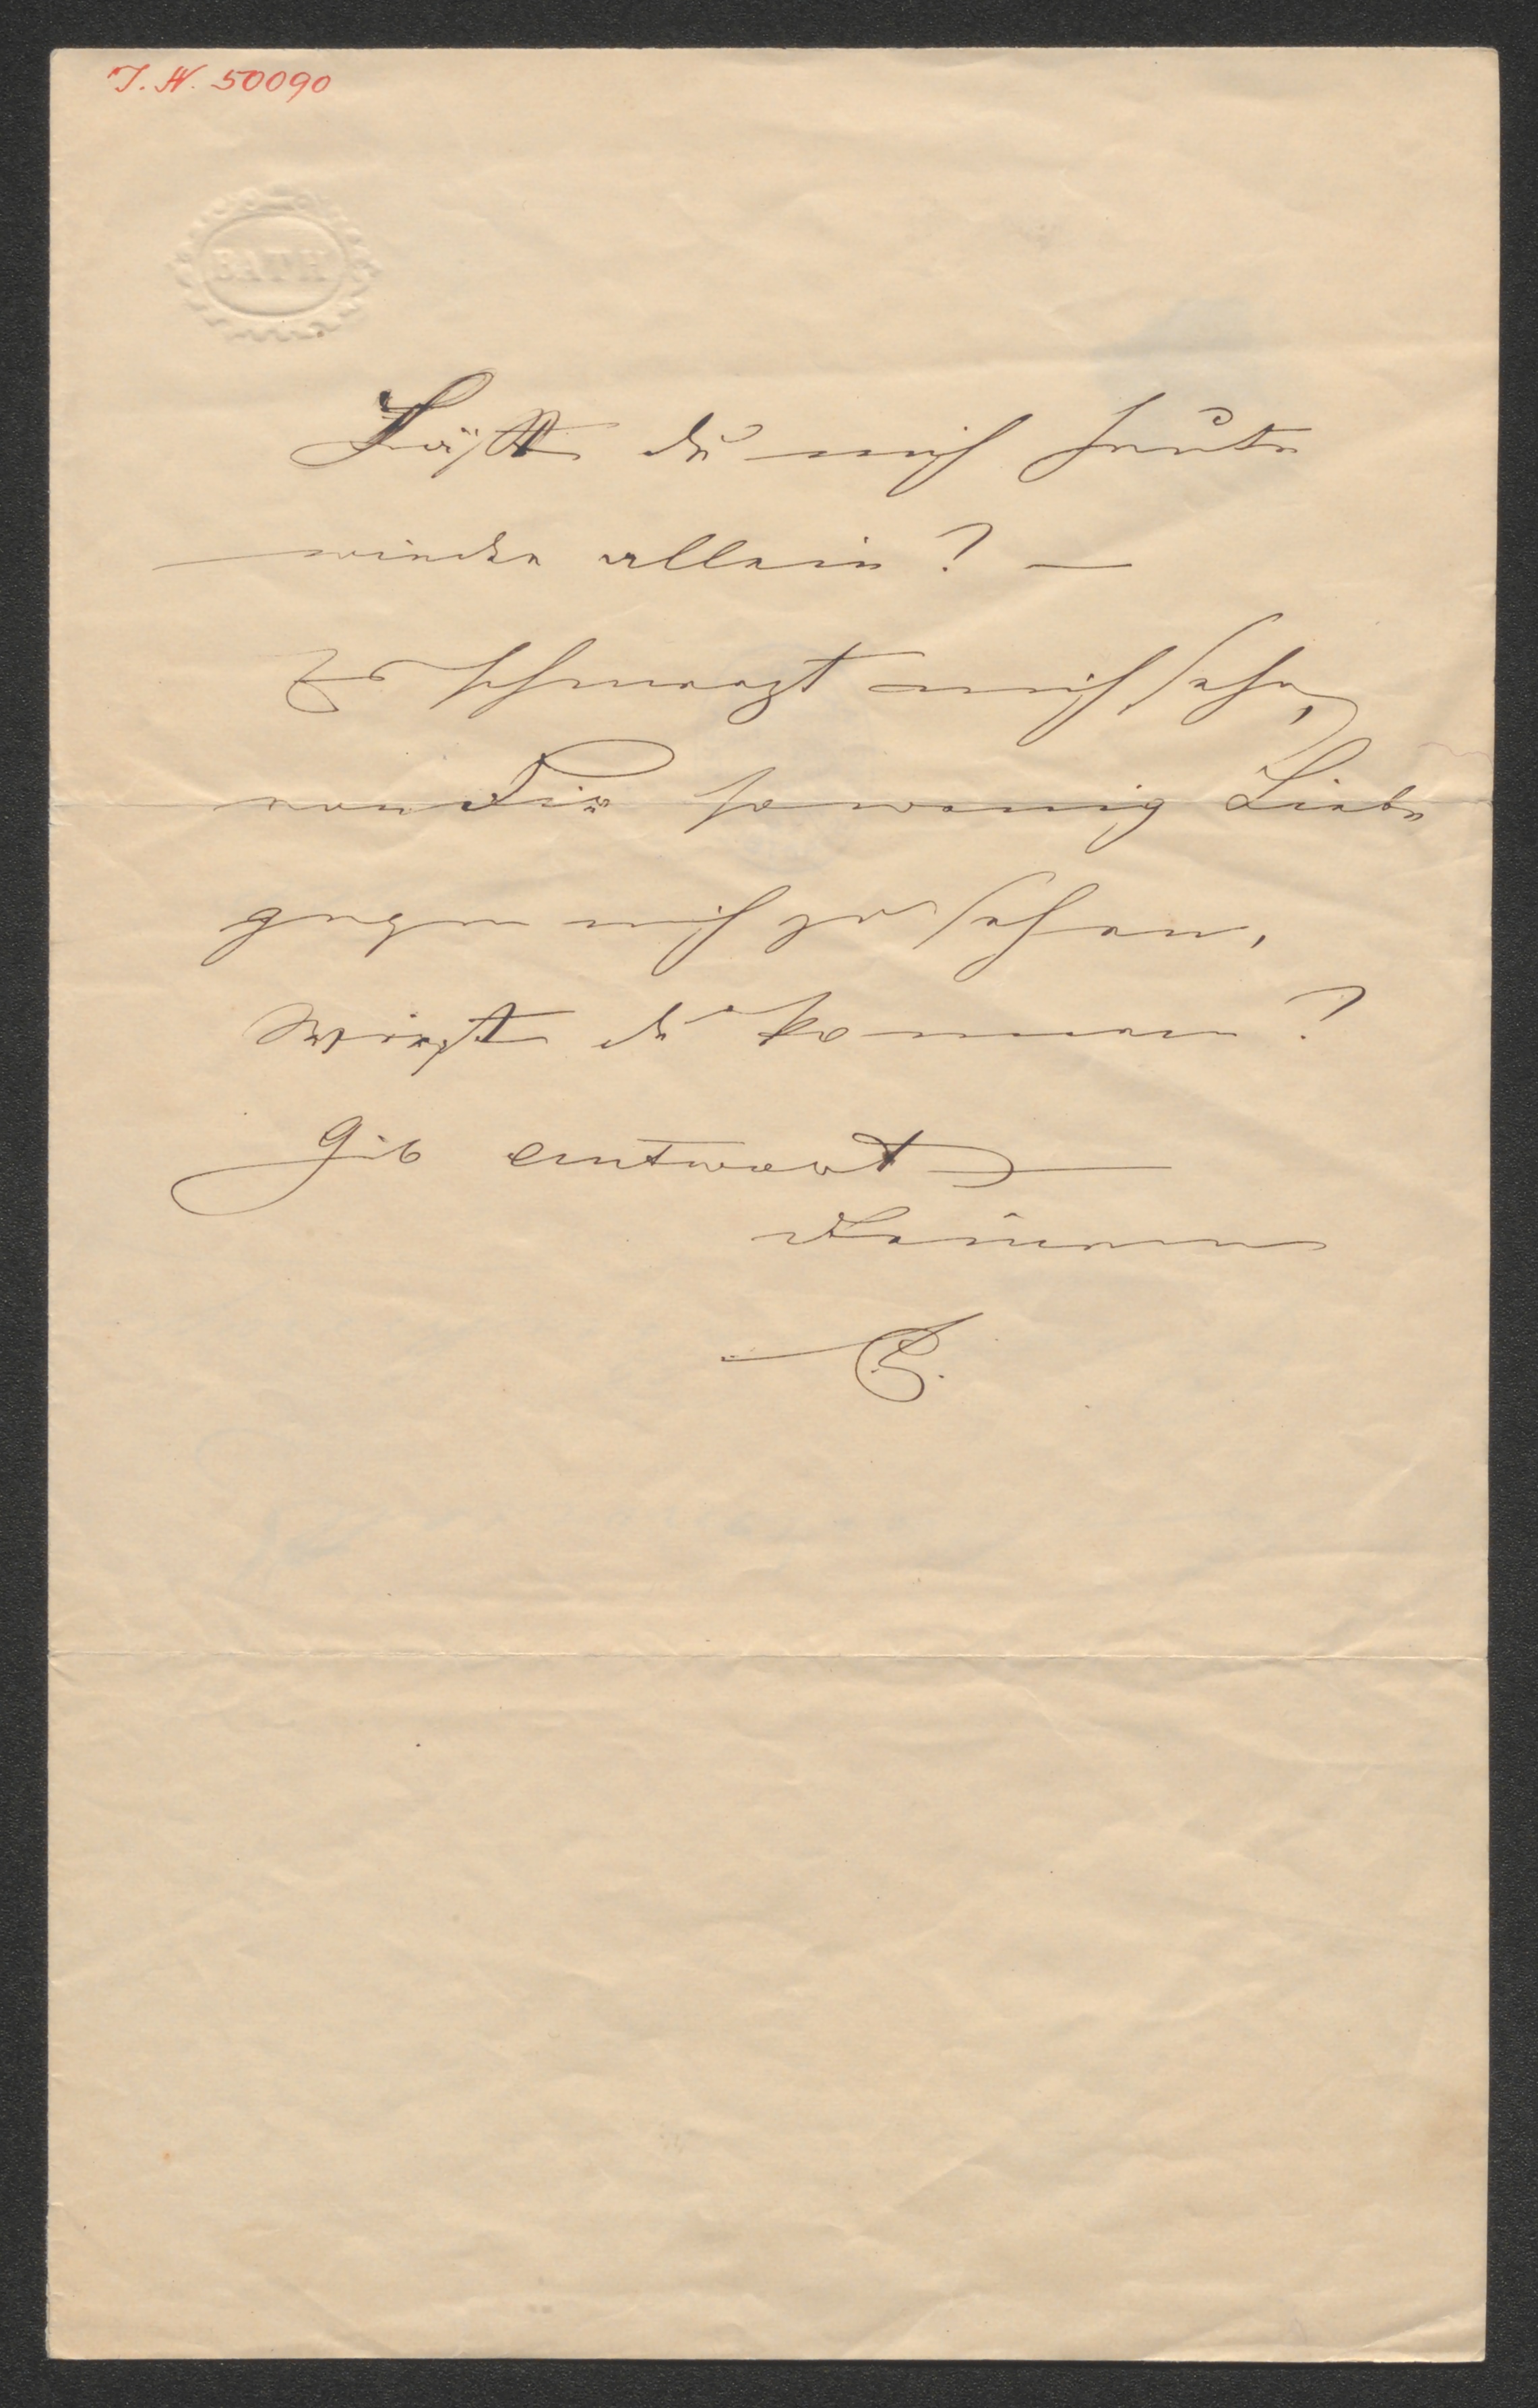 I. N. 50090
BATH
Läßt du mich heute
wieder allein? —
Es schmerzt mich sehr,
von Dir so wenig Liebe
gegen mich zu sehen,
Wirst du kommen?
Gib antwort
Deinem
B.